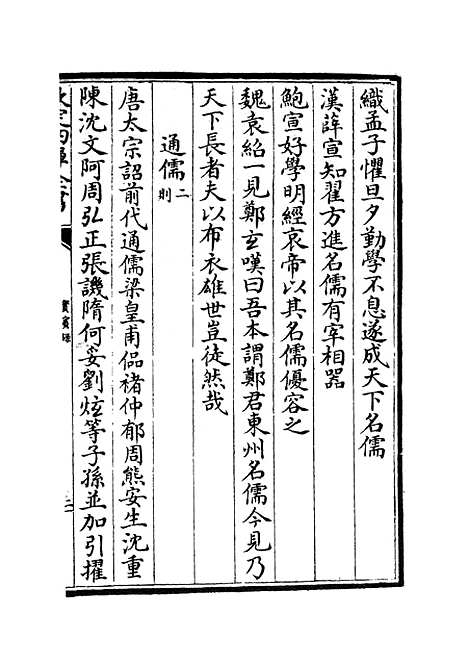 織孟子懼旦夕勤學不息遂成天下名儒
漢薛宣知翟方進名儒有宰相器
鮑宣好學明經哀帝以其名儒優容之
魏袁紹一見鄭玄嘆曰吾本謂鄭君東州名儒今見乃
天下長者夫以布衣雄世豈徒然哉
通儒二則
唐太宗詔前代通儒梁皇甫侃褚仲郁周熊安生沈重
陳沈文阿周弘正張譏隋何妥劉炫等子孫並加引擢